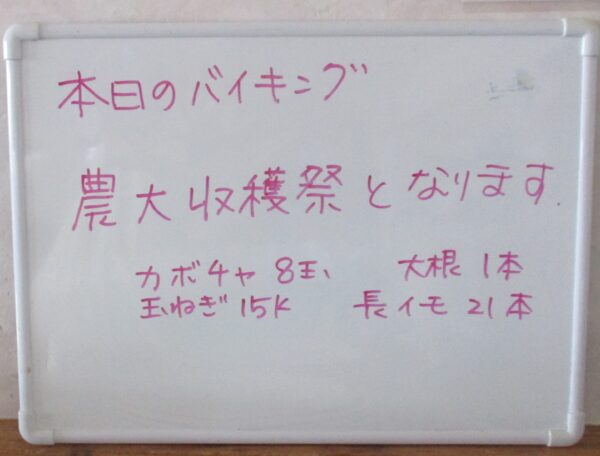 本日のバイキング
農大収穫祭となります
カボチャ 8玉 大根 1本
玉ねぎ 15K 長イモ 21本